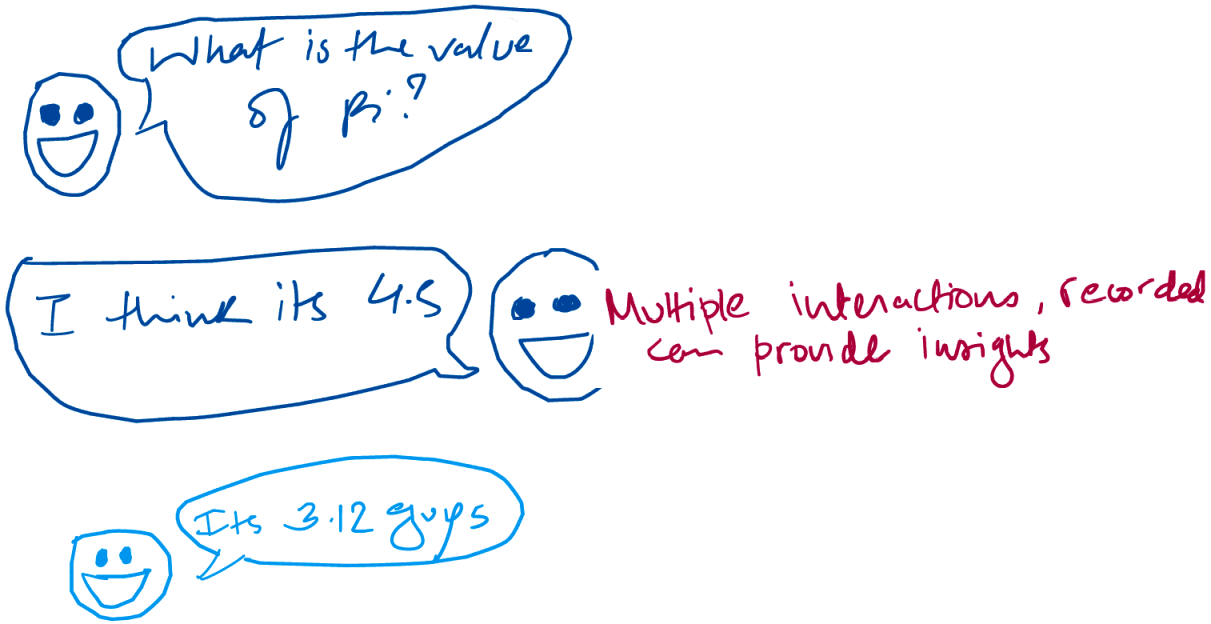 What is the value
of pi?
I think its 4.5
Multiple interactions, recorded
can provide insights
Its 3.12 guys